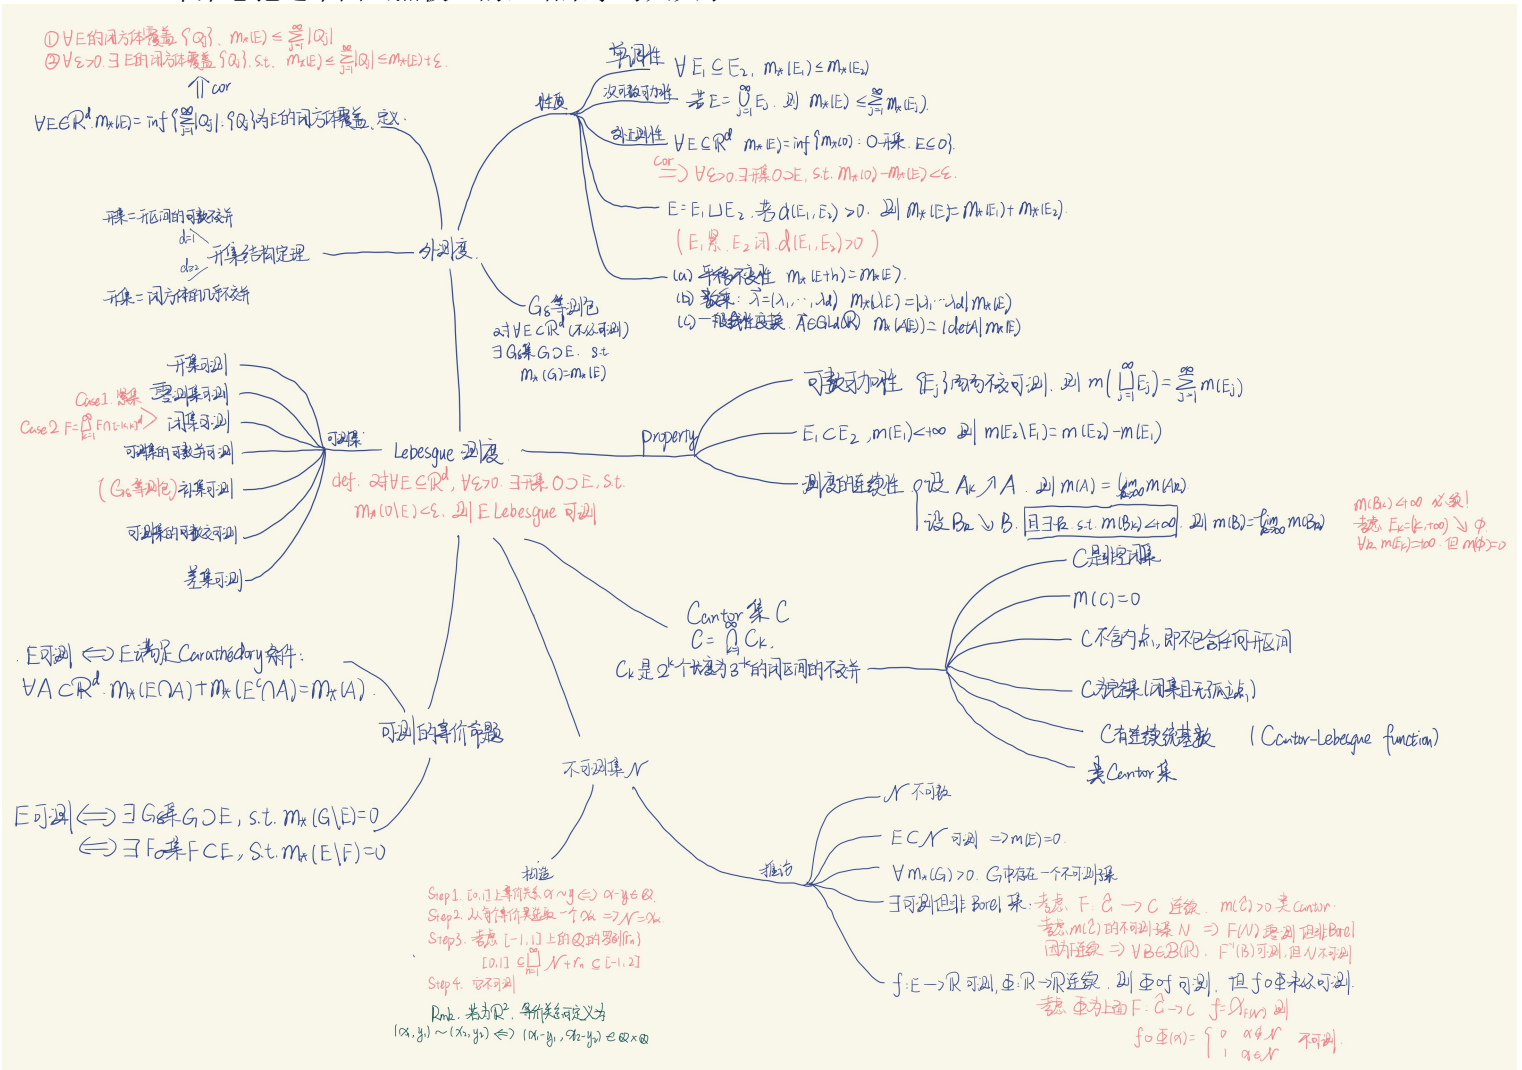 ① ∀E的闭方体覆盖{Qj}, m*(E) ≤ ∑_{j=1}^∞ |Qj|
② ∀ε>0, ∃E的闭方体覆盖{Qj}, s.t. m*(E) ≤ ∑_{j=1}^∞ |Qj| ≤ m*(E)+ε.
⇑ cor
∀E∈ℝ^d, m*(E) = inf{∑_{j=1}^∞ |Qj| : {Qj}为E的闭方体覆盖} 定义
开集=开区间的可数不交并
d=1
开集结构定理
d≥2
开集=闭方体的几乎不交并
外测度
性质
单调性 ∀E₁⊆E₂, m*(E₁)≤m*(E₂)
次可数可加性 若E=⋃_{j=1}^∞ Ej, 则 m*(E) ≤ ∑_{j=1}^∞ m*(Ej).
外正则性 ∀E⊆ℝ^d m*(E)=inf{m*(O): O开集, E⊆O}.
cor ⇒ ∀ε>0, ∃开集O⊃E, s.t. m*(O)-m*(E)<ε.
E=E₁⊔E₂, 若d(E₁,E₂)>0, 则 m*(E)=m*(E₁)+m*(E₂).
(E₁紧, E₂闭, d(E₁,E₂)>0)
(a) 平移不变性 m*(E+h)=m*(E).
(b) 数乘: λ⃗=(λ₁,…,λd) m*(λE)=|λ₁…λd|m*(E)
(c) 一般线性变换 A∈GLd(ℝ) m*(A(E))=|detA|m*(E)
Gδ等测包
对∀E⊂ℝ^d (不必可测)
∃Gδ集G⊃E, s.t.
m*(G)=m*(E)
Lebesgue 测度
def. 对∀E⊆ℝ^d, ∀ε>0, ∃开集O⊃E, s.t.
m*(O\E)<ε, 则E Lebesgue 可测
可测集
开集可测
零测集可测
Case1. 紧集
Case2 F=⋃_{k=1}^∞ F∩[-k,k]^d
闭集可测
可测集的可数并可测
(Gδ等测包) 补集可测
可测集的可数交可测
差集可测
property
可数可加性 {Ej}两两不交可测, 则 m(⨆_{j=1}^∞ Ej)=∑_{j=1}^∞ m(Ej)
E₁⊂E₂, m(E₁)<+∞ 则 m(E₂\E₁)=m(E₂)-m(E₁)
测度的连续性 设 Ak↗A, 则 m(A)=lim_{k→∞} m(Ak)
设 Bk↘B, 且∃k, s.t. m(Bk)<+∞, 则 m(B)=lim_{k→∞} m(Bk)
m(Bk)<+∞ 必须!
考虑 Ek=(k,+∞)↘∅.
∀k, m(Ek)=+∞, 但m(∅)=0
Cantor 集 C
C=⋂_{k=1}^∞ Ck.
Ck是2^k个长度为3^{-k}的闭区间的不交并
C是非空闭集
m(C)=0
C不含内点, 即不包含任何开区间
C为完全集(闭集且无孤立点)
C有连续统基数 (Cantor-Lebesgue function)
类Cantor集
可测的等价命题
E可测 ⟺ E满足Carathéodory条件:
∀A⊂ℝ^d. m*(E∩A)+m*(E^c∩A)=m*(A).
E可测 ⟺ ∃Gδ集G⊃E, s.t. m*(G\E)=0
⟺ ∃Fσ集F⊂E, s.t. m*(E\F)=0
不可测集 𝒩
构造
Step1. [0,1]上等价关系 x~y ⟺ x-y∈ℚ
Step2. 从每个等价类选取一个xα ⇒ 𝒩=xα.
Step3. 考虑 [-1,1]上的ℚ的罗列{rn}
[0,1] ⊆ ⨆_{n=1}^∞ 𝒩+rn ⊆ [-1,2]
Step4. 它不可测
Rmk. 若为ℝ², 等价关系可定义为
(x₁,y₁)~(x₂,y₂) ⟺ (x₁-y₁, x₂-y₂)∈ℚ×ℚ
推论
𝒩 不可数
E⊂𝒩 可测 ⇒ m(E)=0.
∀m*(G)>0. G中存在一个不可测子集
∃可测但非Borel 集.
考虑 F: Ĉ → C 连续. m(Ĉ)>0 类Cantor.
考虑m(Ĉ)的不可测子集 N ⇒ F(N)零测但非Borel
因为F连续 ⇒ ∀B∈B(ℝ), F⁻¹(B)可测, 但N不可测
f:E→ℝ可测, Φ:ℝ→ℝ连续, 则Φ∘f可测, 但f∘Φ未必可测.
考虑 Φ为上面 F: Ĉ→C f=χ_{F(N)} 则
f∘Φ(x)={ 0 x∉𝒩
1 x∈𝒩 不可测.